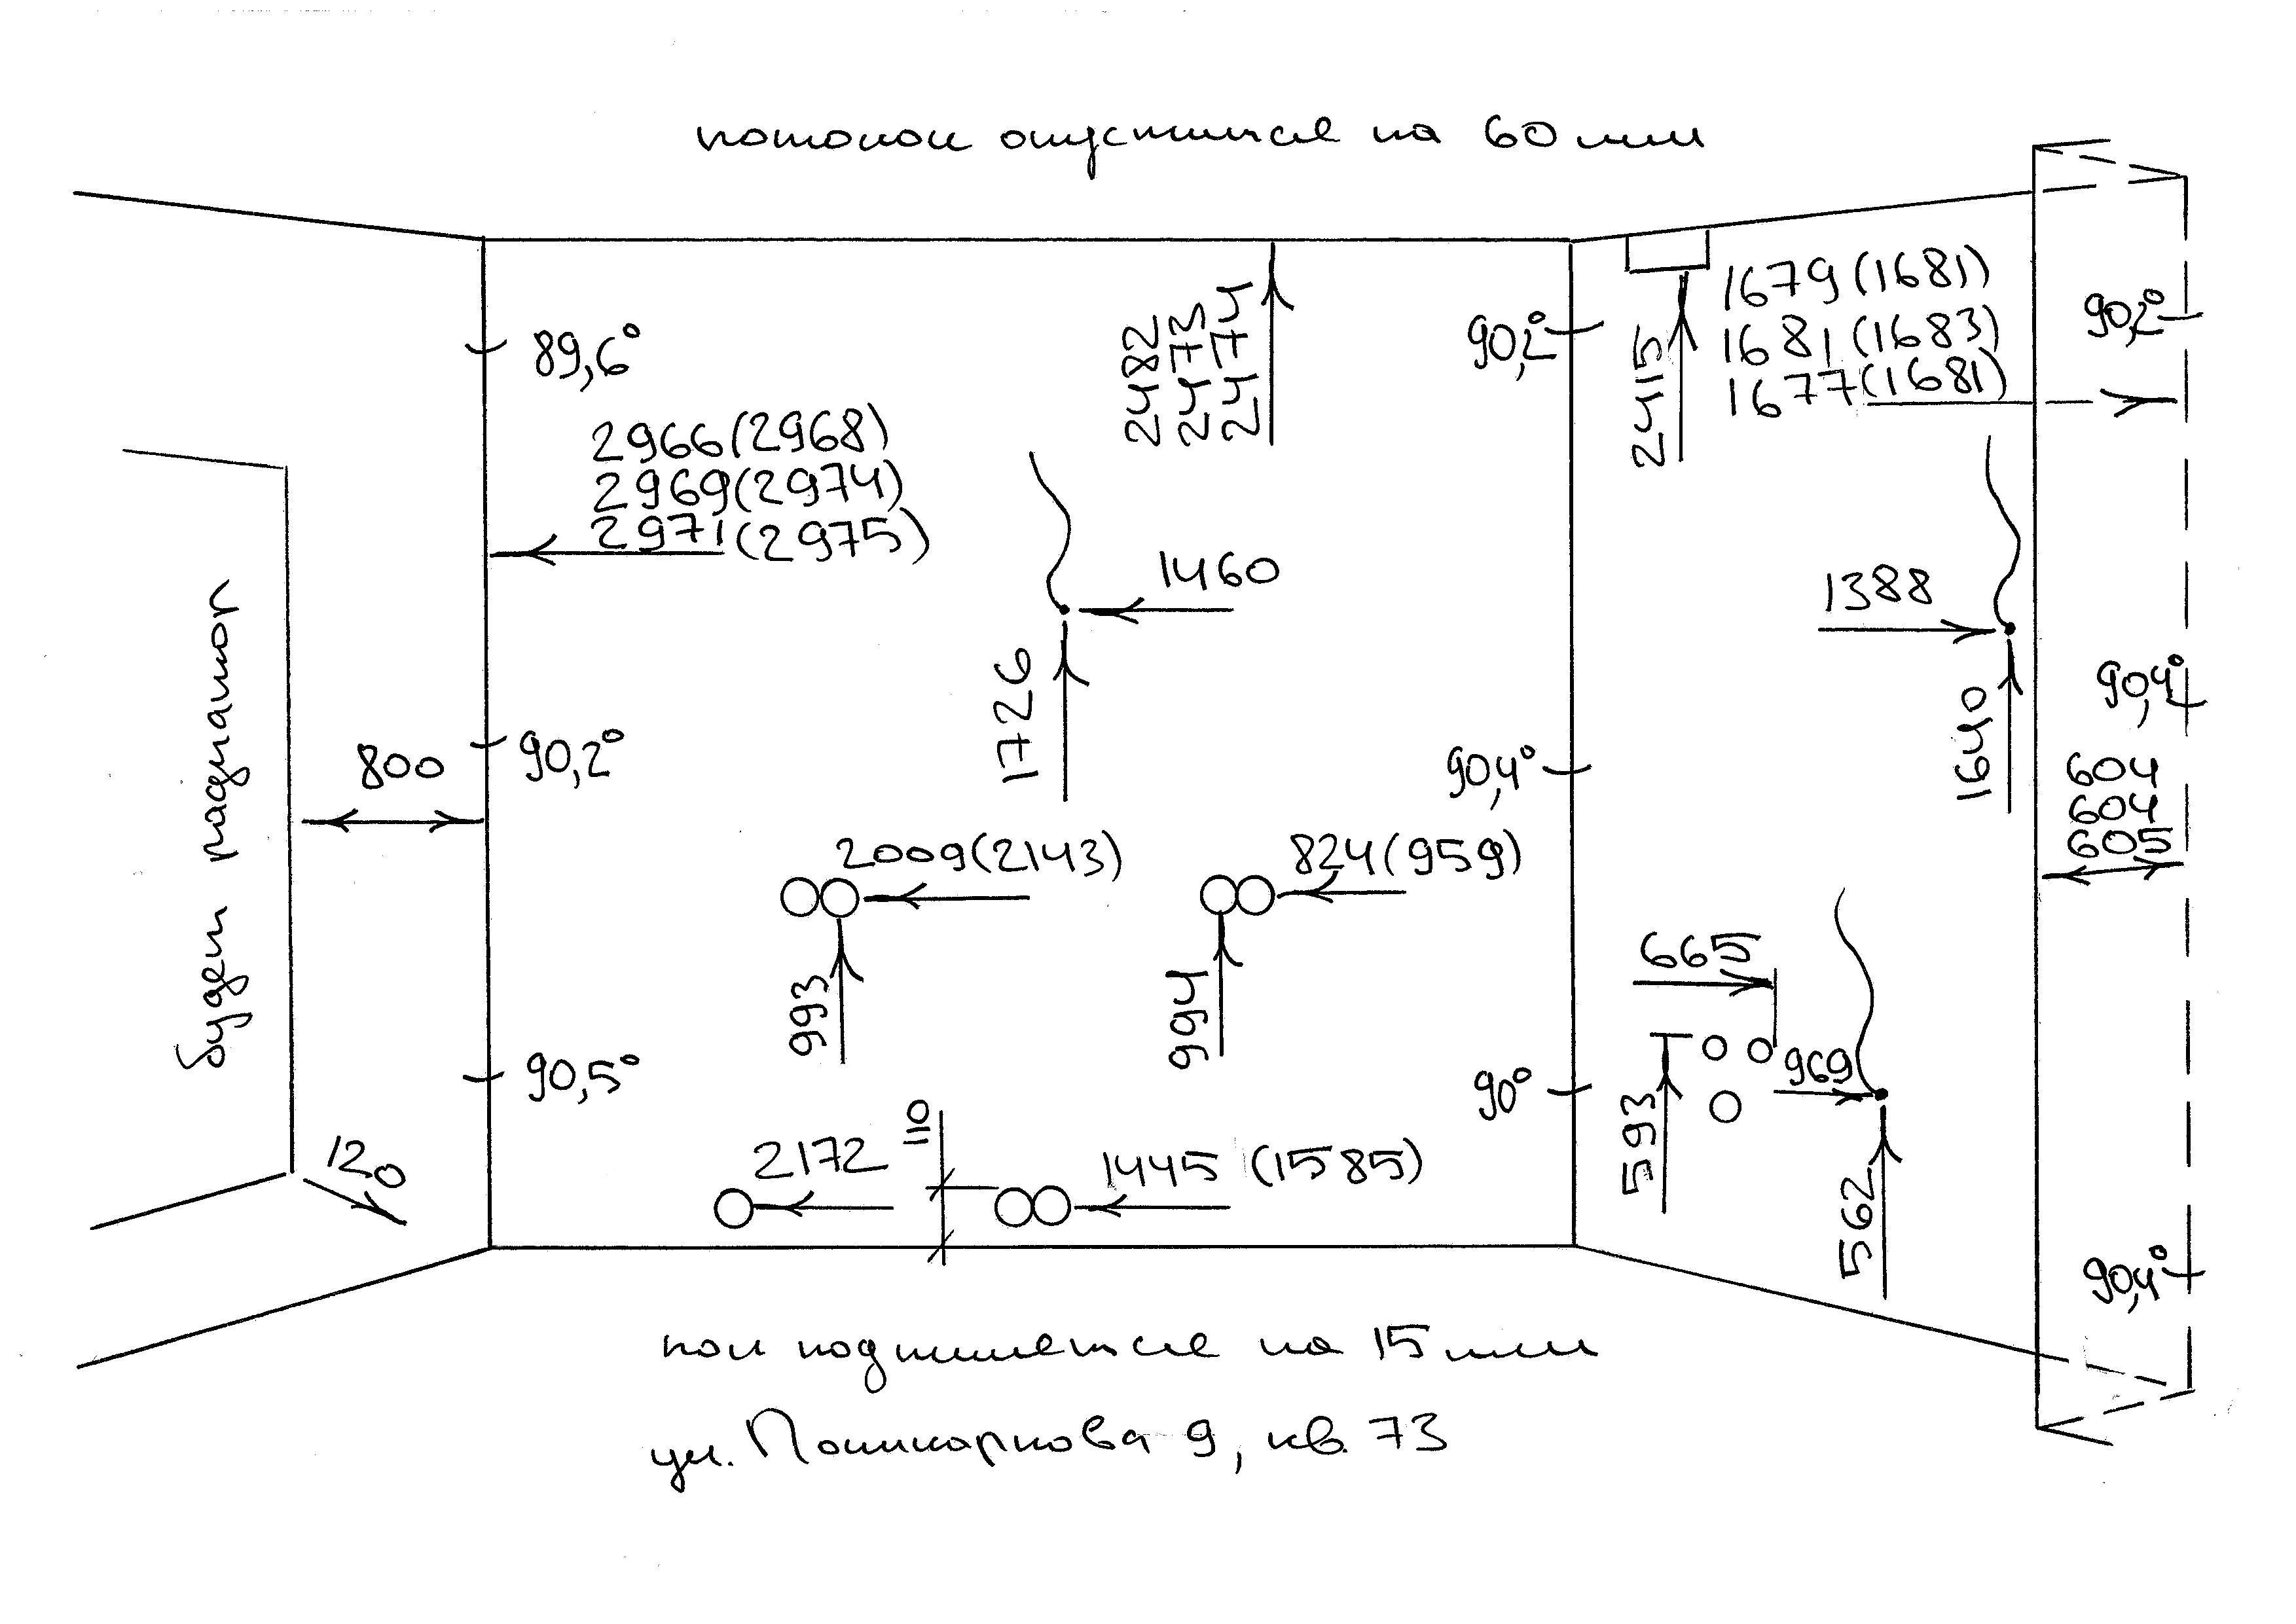 потолок опустится на 60 мм
89,6°
2482
2473
2474
90,2°
2415
1679 (1681)
1681 (1683)
1677 (1681)
90,2°
2966 (2968)
2969 (2974)
2971 (2975)
1460
1726
1388
1640
90,4°
604
604
605
будет радиатор
800
90,2°
90,4°
2009 (2143)
993
824 (959)
994
665
593
969
562
90,5°
90°
120
2172
110
1445 (1585)
90,4°
пол поднимется на 15 мм
ул. 9, кв. 73